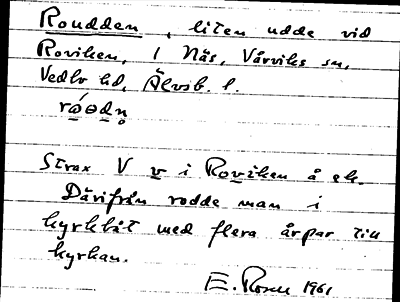 Roudden, liten udde vid
Roviken, i Näs, Vårviks sn,
Vedbo hd, Älvsb. l.
Strax V v i Roviken å ek.
Därifrån rodde man i
kyrkbåt med flera årpar till
kyrkan.
E. Rosell 1961